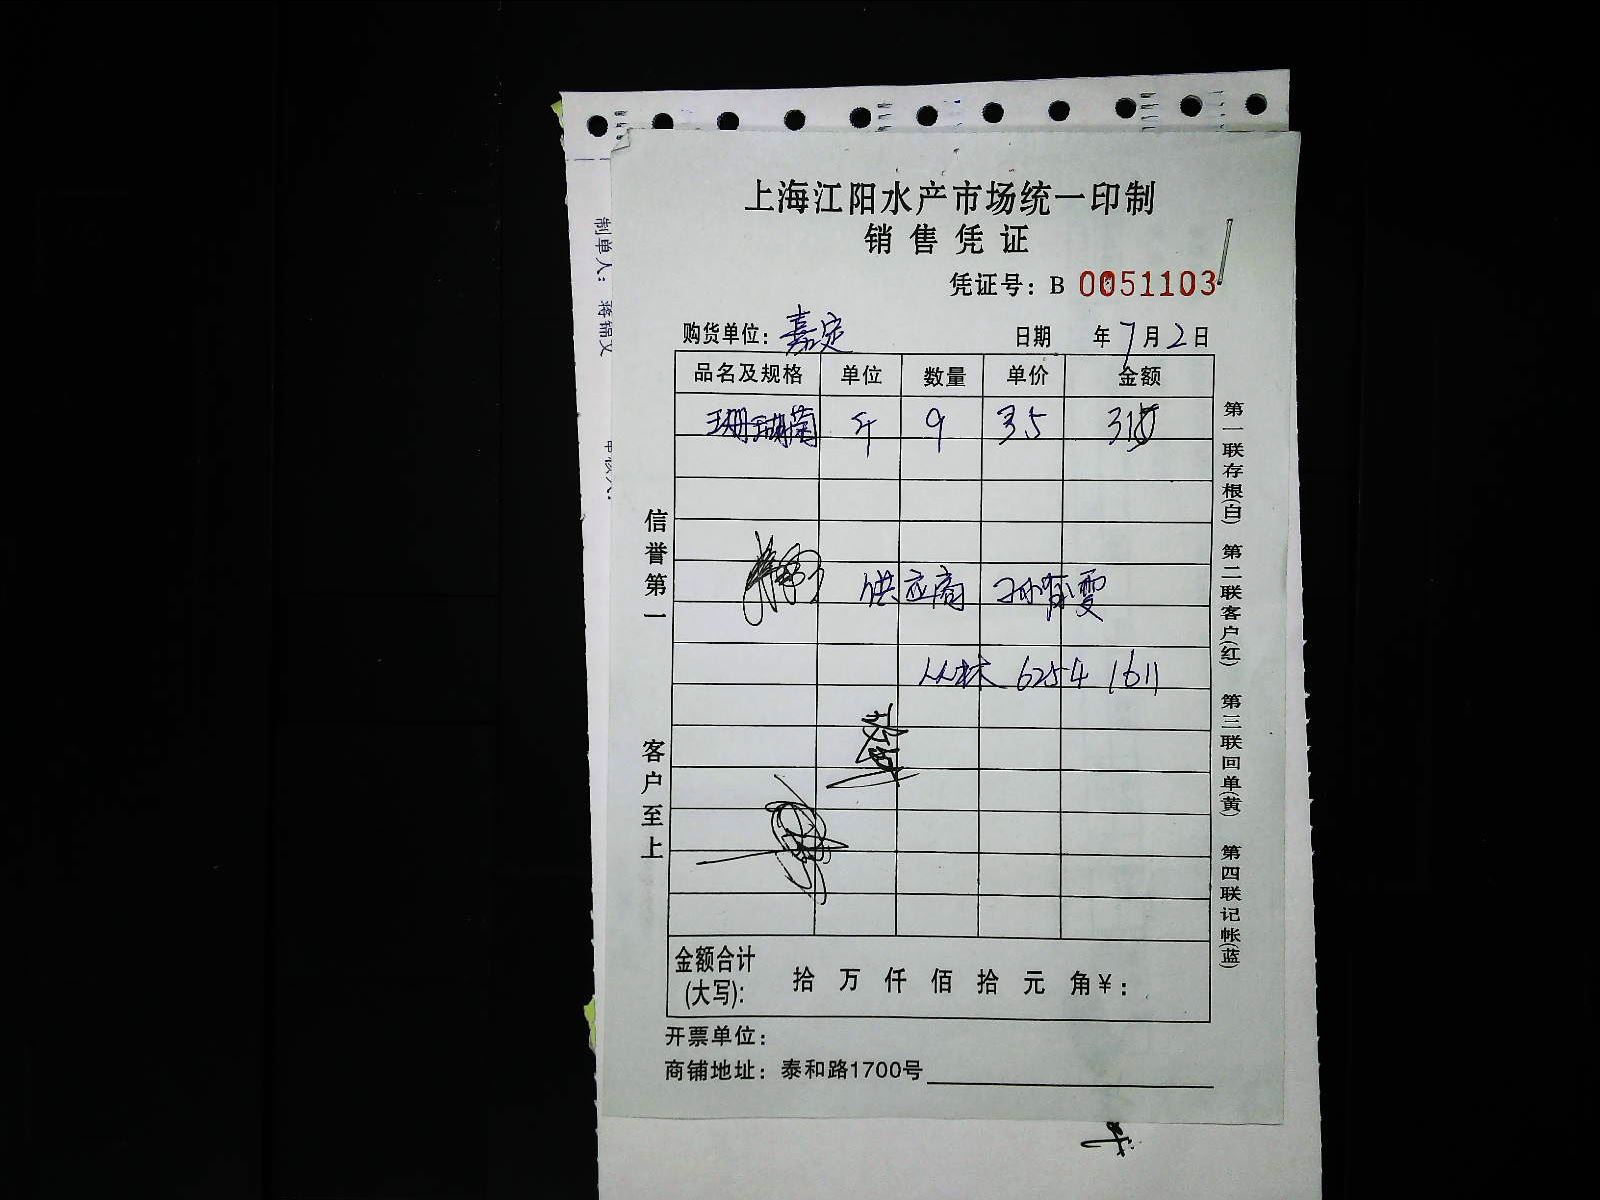 上海江阳水产市场统一印制
销售凭证
凭证号：B 0051103
购货单位：嘉定 日期 年7月2日
品名及规格 单位 数量 单价 金额
珊瑚菌 斤 9 35 315
供应商
丛林 6254 1611
金额合计(大写)： 拾 万 仟 佰 拾 元 角￥：
开票单位：
商铺地址：泰和路1700号
信誉第一
客户至上
第一联存根(白) 第二联客户(红) 第三联回单(黄) 第四联记帐(蓝)
制单人：